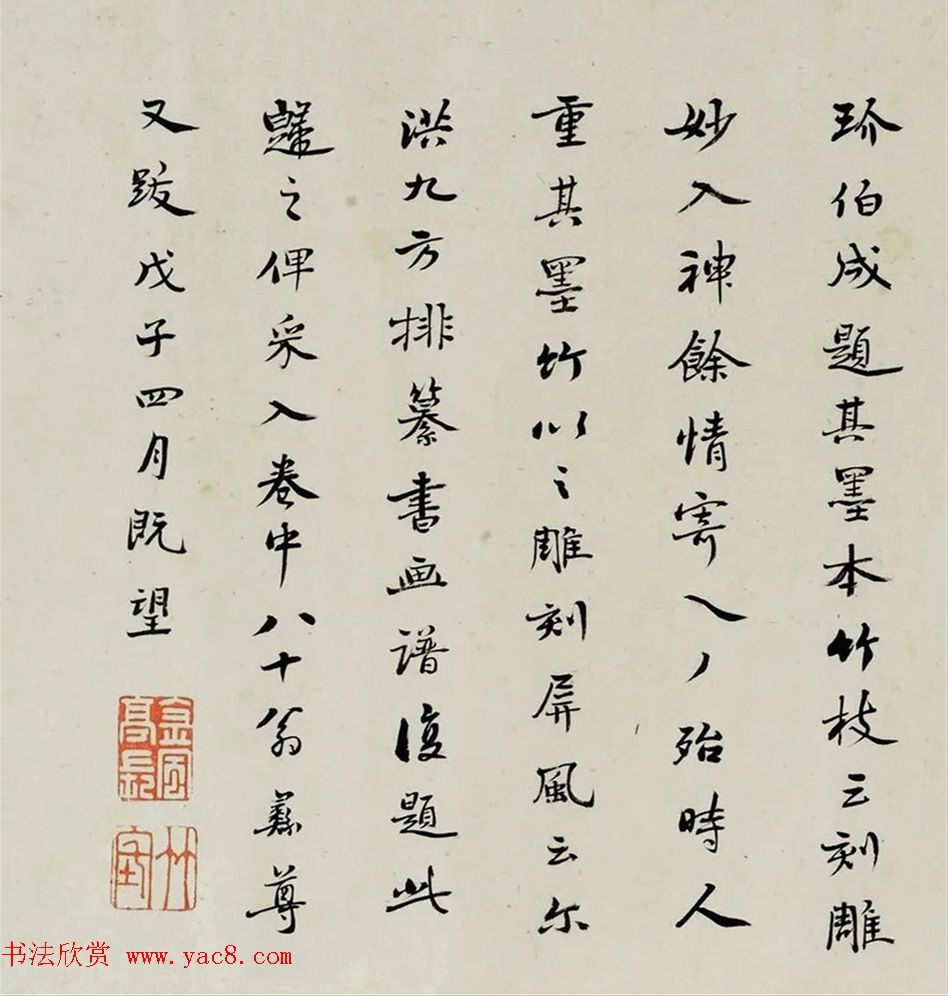 玠伯成題其墨本竹枝云刻雕
妙入神餘情寄乀丿殆時人
重其墨竹以之雕刻屏風云尔
洪九方排纂書画譜復題此
歸之俾采入卷中八十翁彝尊
又跋戊子四月既望
金風亭長
竹垞
书法欣赏 www.yac8.com